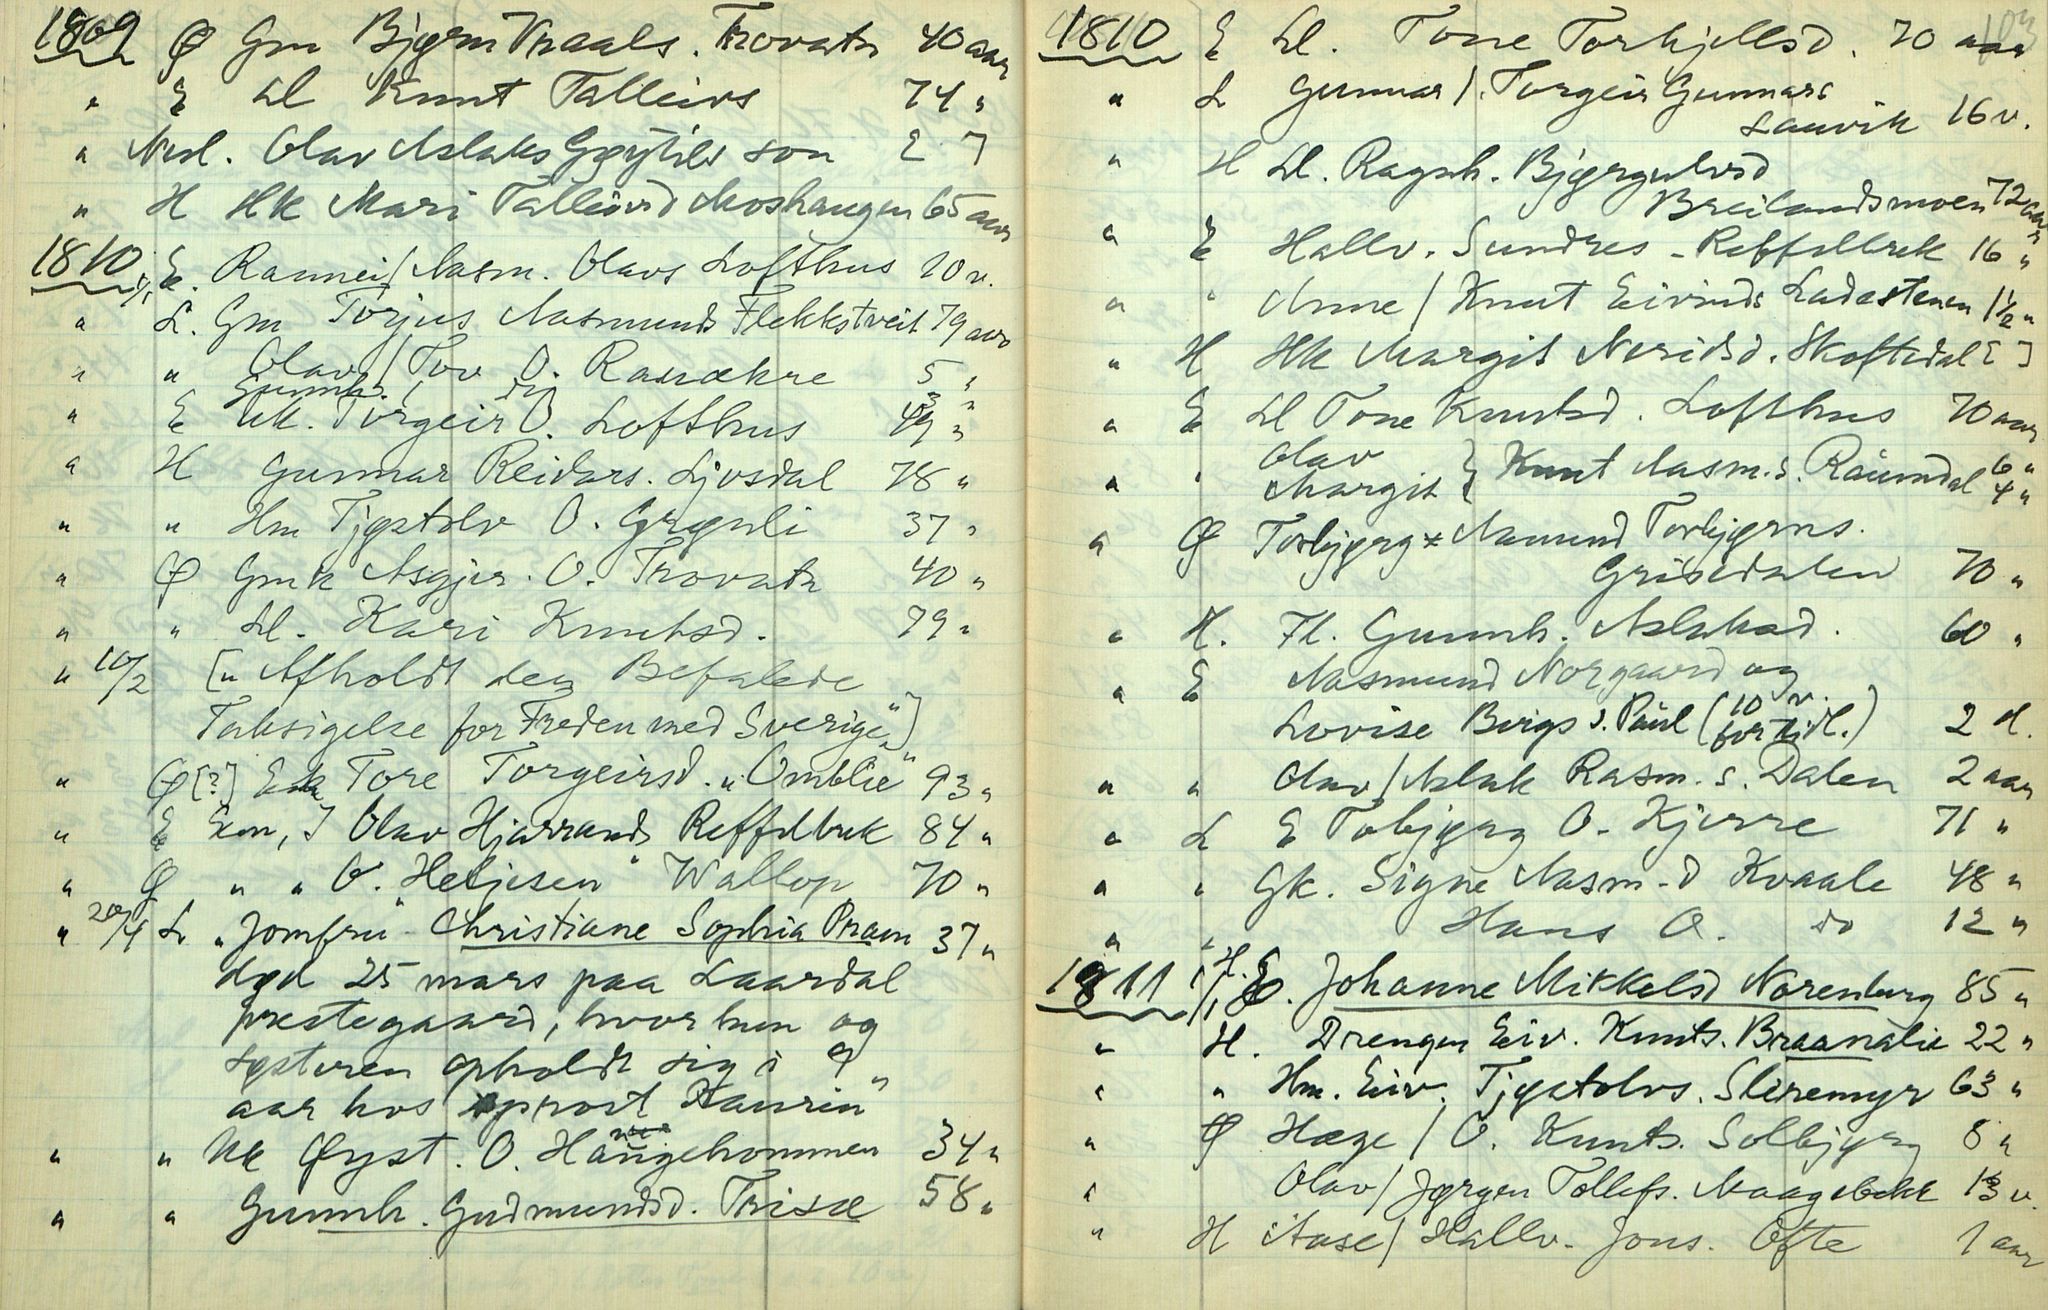 1809 Ø Gm Bjørn Knaals. Trovatn 40 aar
" E Ll Knut Talleivs 74 "
" Nesl. Olav Aslaks Gøytil son E 7
" H Hk Mari Talleivsd Moshaugen 65 aar
1810 1/1 E. Rannei / Aasm. Olavs Lofthus 20 v.
" L. Gm Torjus Aasmunds Flekkstveit 79 aar
" " Olav / Tov O. Rauækre 5 "
Gunnh. / do 3 "
" E Uk. Torgeir O. Lofthus 49 "
" H Gunnar Reidars. Ljosdal 78 "
" " Hm Tjøstolv O. Grønli 37 "
" Ø Gmk Asgjer. O. Trovatn 40 "
" " Ll. Kari Knutsd. 79 "
" 10/2 [" Afholdt den Befalede
Taksigelse for Freden med Sverige"]
" Ø [?] Ek Tore Torgeirsd. "Omblie" 93 "
" E Em, J Olav Hjarrands Reffelbek 84 "
" Ø " " O. Heljesen" Wallop 70 "
" 20/4 L "Jomfru" Christiane Sophia Pram 37 "
død 25 mars paa Laardal
prestegaard, hvor hun og
søsteren opholdt sig i 9 "
aar hos prost Kaurin"
" " Uk Øyst. O. Haugehommen 34 "
" " Gunnh. Gudmundsd. Trisæ 58 "
103
1810 E Ll. Tone Torkjellsd. 70 aar
" L Gunnar /. Torgeir Gunnars
Lauvik 16 v.
" H Ll. Ragnh. Bjørgulvsd
Breilandsmoen 72 aar
" E Hallv. Sundres - Reffelbek 16 "
" " Anne / Knut Eivinds Ladestenen 1 1/2 "
" H Hk Margit Neridsd. Skoftedal [ ]
" E Ll Tone Knutsd. Lofthus 70 aar
" " Olav 6 "
Margit } Knut Aasm.s. Råmdal 4 "
" Ø Torbjørg * Aamund Torbjørns.
Grisedalen 70 "
" H. Fl. Gunnh. Aslaksd. 60 "
" E Aasmund Norgaard og
Lovise Birgs d. Paul (10 v. for tidl.) 2 d.
" " Olav / Aslak Rasm. s. Dalen 2 aar
" L E Tobjørg O. Kjerre 71 "
" " Gk. Signe Aasm.d Kvaale 48 "
" " Hans O. do 12 "
1811 1/1 H. E. Johanne Mikkelsd Norenburg 85 "
" H. Drengen Eiv. Knuts. Braanalie 22 "
" " Hm. Eiv. Tjøstolvs. Steremyr 63 "
" Ø Hæge / O. Knuts. Solbjørg 8 "
" Olav / Jørgen Tollefs. Maagebekk 13 v.
" H Aase / Hallv. Jons. Ofte 1 aar